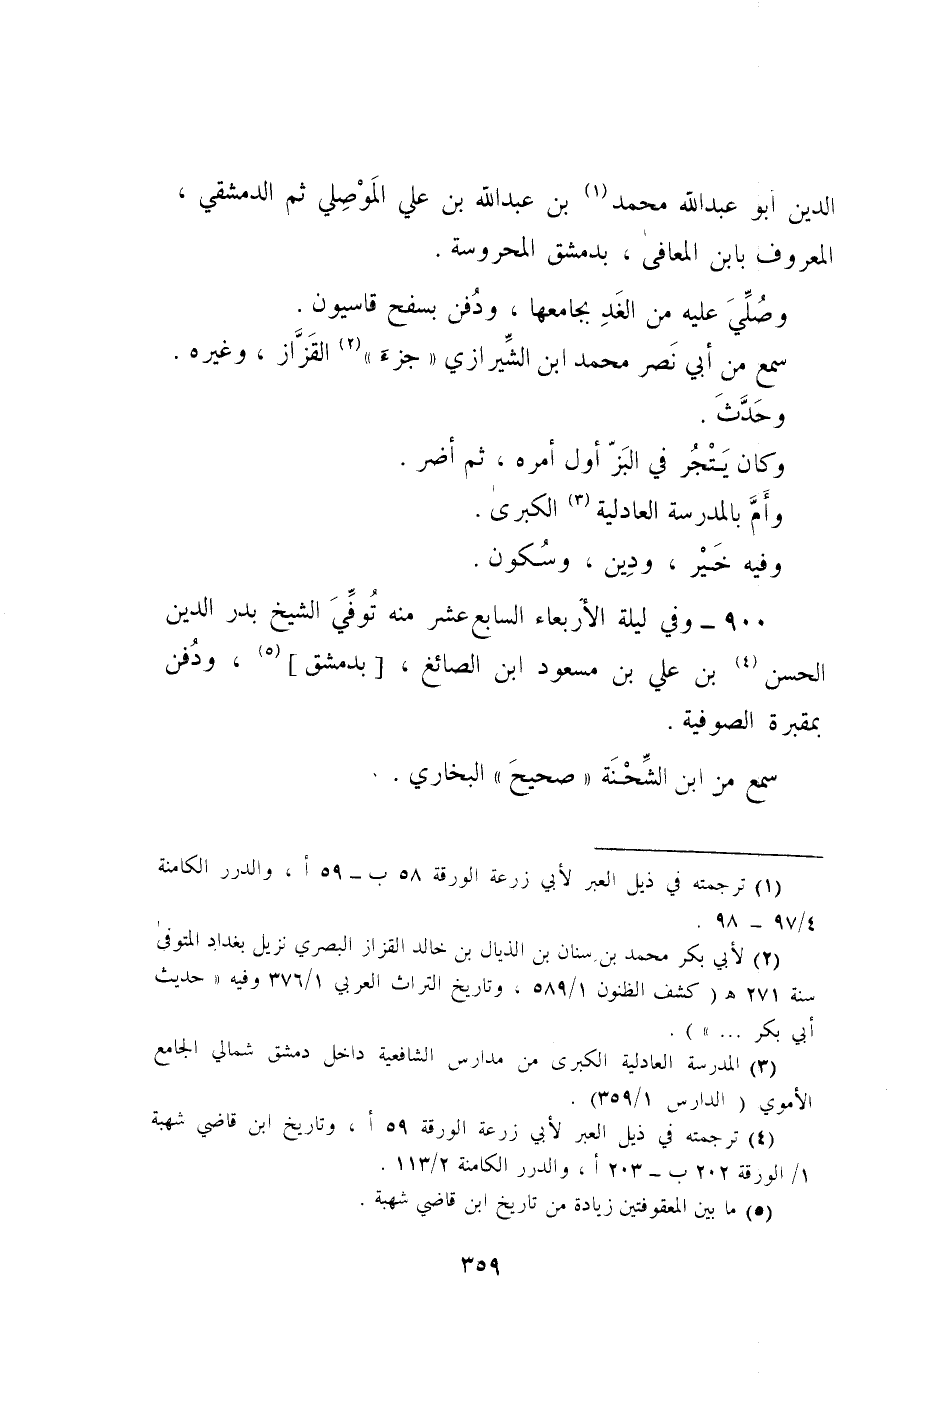 الدين أبو عبدالله محمد (١) بن عبدالله بن علي المَوْصِلي ثم الدمشقي ،
المعروف بابن المعافىٰ ، بدمشق المحروسة .
وصُلِّيَ عليه من الغَدِ بجامعها ، ودُفن بسفح قاسيون .
سمع من أبي نَصر محمد ابن الشِّيرازي « جزءَ » (٢) القَزَّاز ، وغيره .
وحَدَّثَ .
وكان يَتْجُر في البَزّ أول أمره ، ثم أضر .
وأَمَّ بالمدرسة العادلية (٣) الكبرىٰ .
وفيه خَيْر ، ودِين ، وسُكون .
٩٠٠ ــ وفي ليلة الأربعاء السابع عشر منه تُوفِّيَ الشيخ بدر الدين
الحسن (٤) بن علي بن مسعود ابن الصائغ ، [ بدمشق ] (٥) ، ودُفن
بمقبرة الصوفية .
سمع من ابن الشِّحْنَة « صحيحَ » البخاري .
(١) ترجمته في ذيل العبر لأبي زرعة الورقة ٥٨ ب ــ ٥٩ أ ، والدرر الكامنة
٩٧/٤ ــ ٩٨ .
(٢) لأبي بكر محمد بن سنان بن الذيال بن خالد القزاز البصري نزيل بغداد المتوفىٰ
سنة ٢٧١ هـ ( كشف الظنون ٥٨٩/١ ، وتاريخ التراث العربي ٣٧٦/١ وفيه « حديث
أبي بكر ... » ) .
(٣) المدرسة العادلية الكبرى من مدارس الشافعية داخل دمشق شمالي الجامع
الأموي ( الدارس ٣٥٩/١) .
(٤) ترجمته في ذيل العبر لأبي زرعة الورقة ٥٩ أ ، وتاريخ ابن قاضي شهبة
١/ الورقة ٢٠٢ ب ــ ٢٠٣ أ ، والدرر الكامنة ١١٣/٢ .
(٥) ما بين المعقوفتين زيادة من تاريخ ابن قاضي شهبة .
٣٥٩